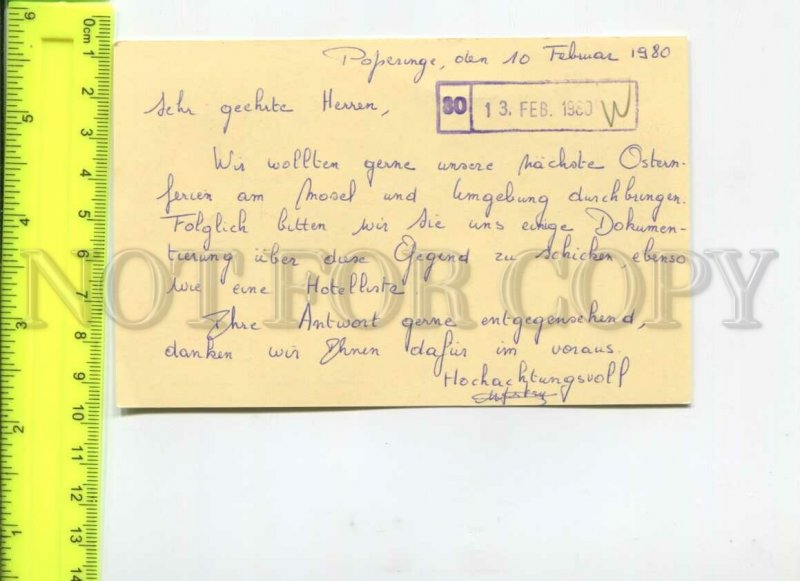 Poperinge, den 10 Februar 1980
80 13. FEB. 1980 W
Sehr geehrte Herren,
Wir wollten gerne unsere nächste Ostern-
ferien am Mosel und Umgebung durchbringen.
Folglich bitten wir Sie uns einige Dokumen-
tierung über diese Gegend zu schicken, ebenso
wie eine Hotelliste
Ihre Antwort gerne entgegensehend,
danken wir Ihnen dafür im voraus.
Hochachtungsvoll
NOT FOR COPY
0cm 1 2 3 4 5 6 7 8 9 10 11 12 13 14
6 5 4 3 2